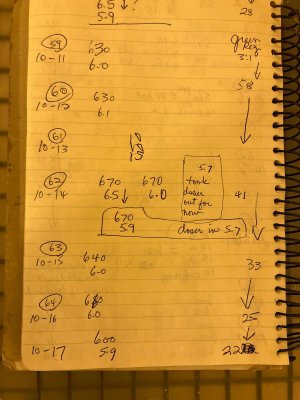 6.5 ↓
5.9
28
59 630 green Rez
10-11 6.0 31
60 630 58
10-12 6.1
61
10-13
62 670 670 5.7
10-14 6.5 ↓ 6.0 took doser out for now 41
670
5.9 doser in 5.7
63 640 33
10-15 6.0
64
10-16 6.0 25
600
10-17 5.9 22